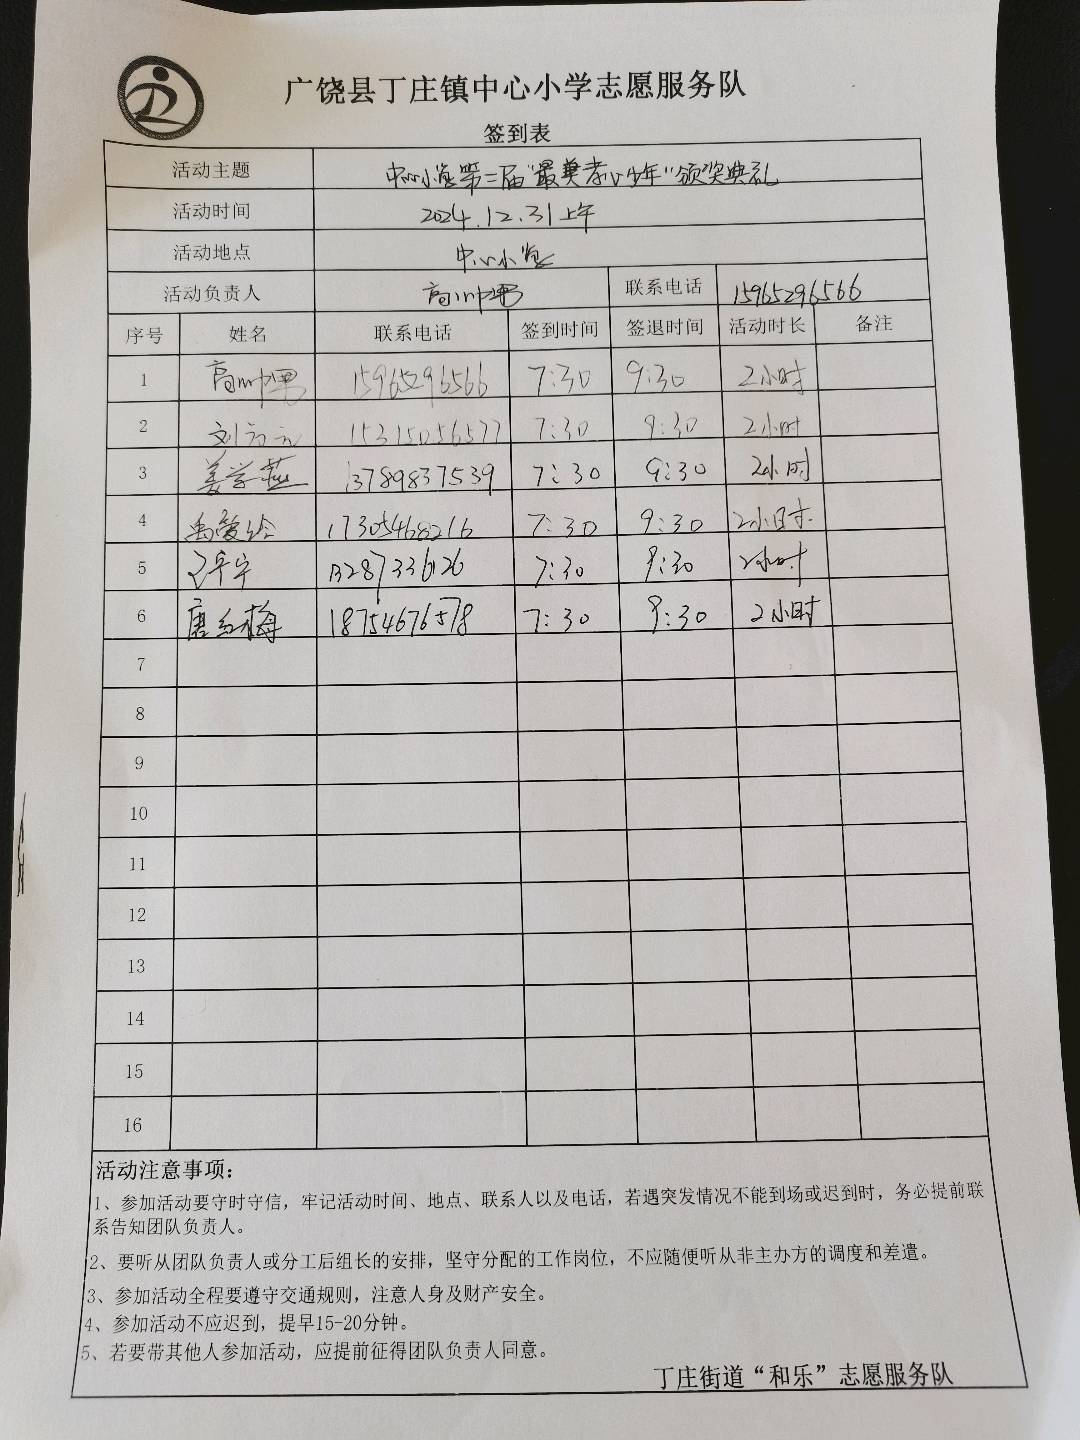 广饶县丁庄镇中心小学志愿服务队
签到表
活动主题 中心小学第二届"最美孝心少年"颁奖典礼
活动时间 2024.12.31上午
活动地点 中心小学
活动负责人 联系电话 15965296566
序号 姓名 联系电话 签到时间 签退时间 活动时长 备注
1 15965296566 7:30 9:30 2小时
2 15315056577 7:30 9:30 2小时
3 姜学燕 13789837539 7:30 9:30 2小时
4 17305468216 7:30 9:30 2小时
5 13287336126 7:30 9:30 2小时
6 唐红梅 18754676578 7:30 9:30 2小时
7
8
9
10
11
12
13
14
15
16
活动注意事项:
1、参加活动要守时守信，牢记活动时间、地点、联系人以及电话，若遇突发情况不能到场或迟到时，务必提前联
系告知团队负责人。
2、要听从团队负责人或分工后组长的安排，坚守分配的工作岗位，不应随便听从非主办方的调度和差遣。
3、参加活动全程要遵守交通规则，注意人身及财产安全。
4、参加活动不应迟到，提早15-20分钟。
5、若要带其他人参加活动，应提前征得团队负责人同意。
丁庄街道“和乐”志愿服务队